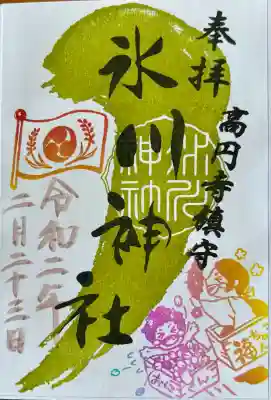 奉拝
高円寺鎮守
氷川神社
氷川神社
令和二年
二月二十三日